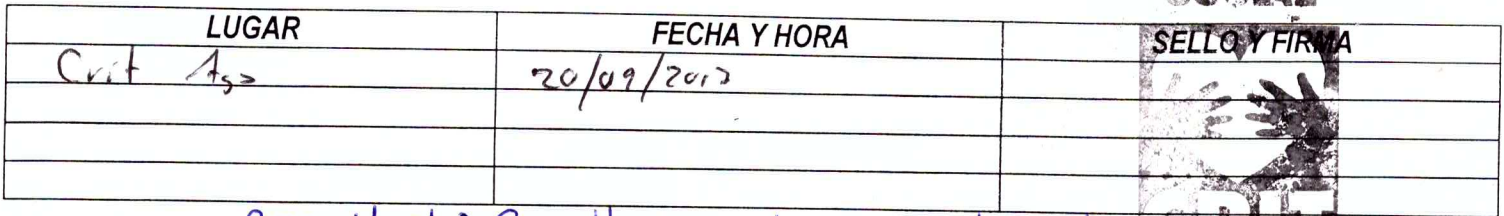 LUGAR FECHA Y HORA SELLO Y FIRMA
Crit Ags 20/09/2013
CRIT